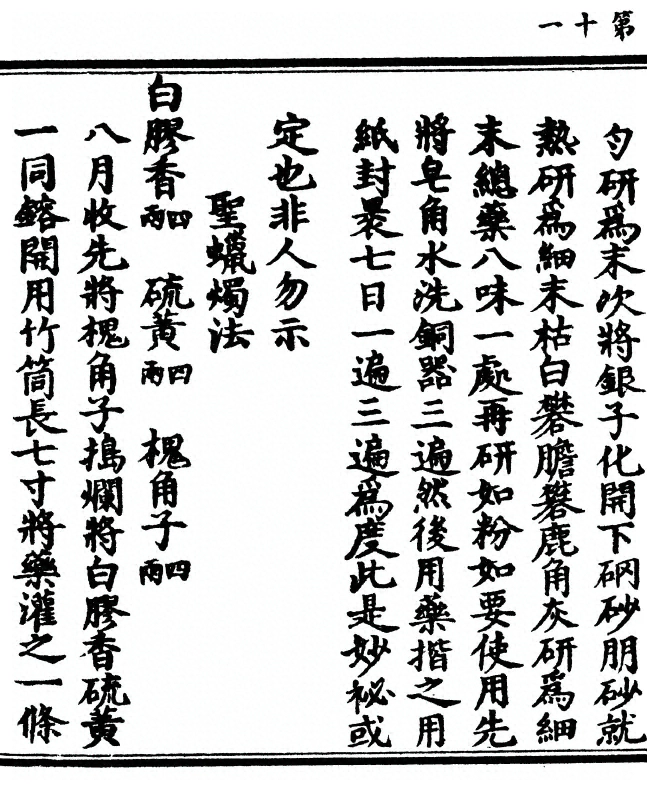 第十一
勻研爲末次將銀子化開下硇砂朋砂就
熱研爲細末枯白礬膽礬鹿角灰研爲細
末總藥八味一處再研如粉如要使用先
將皂角水洗銅器三遍然後用藥揩之用
紙封褁七日一遍三遍爲度此是妙祕或
定也非人勿示
聖蠟燭法
白膠香四兩 硫黃四兩 槐角子四兩
八月收先將槐角子搗爛將白膠香硫黃
一同鎔開用竹筒長七寸將藥灌之一條